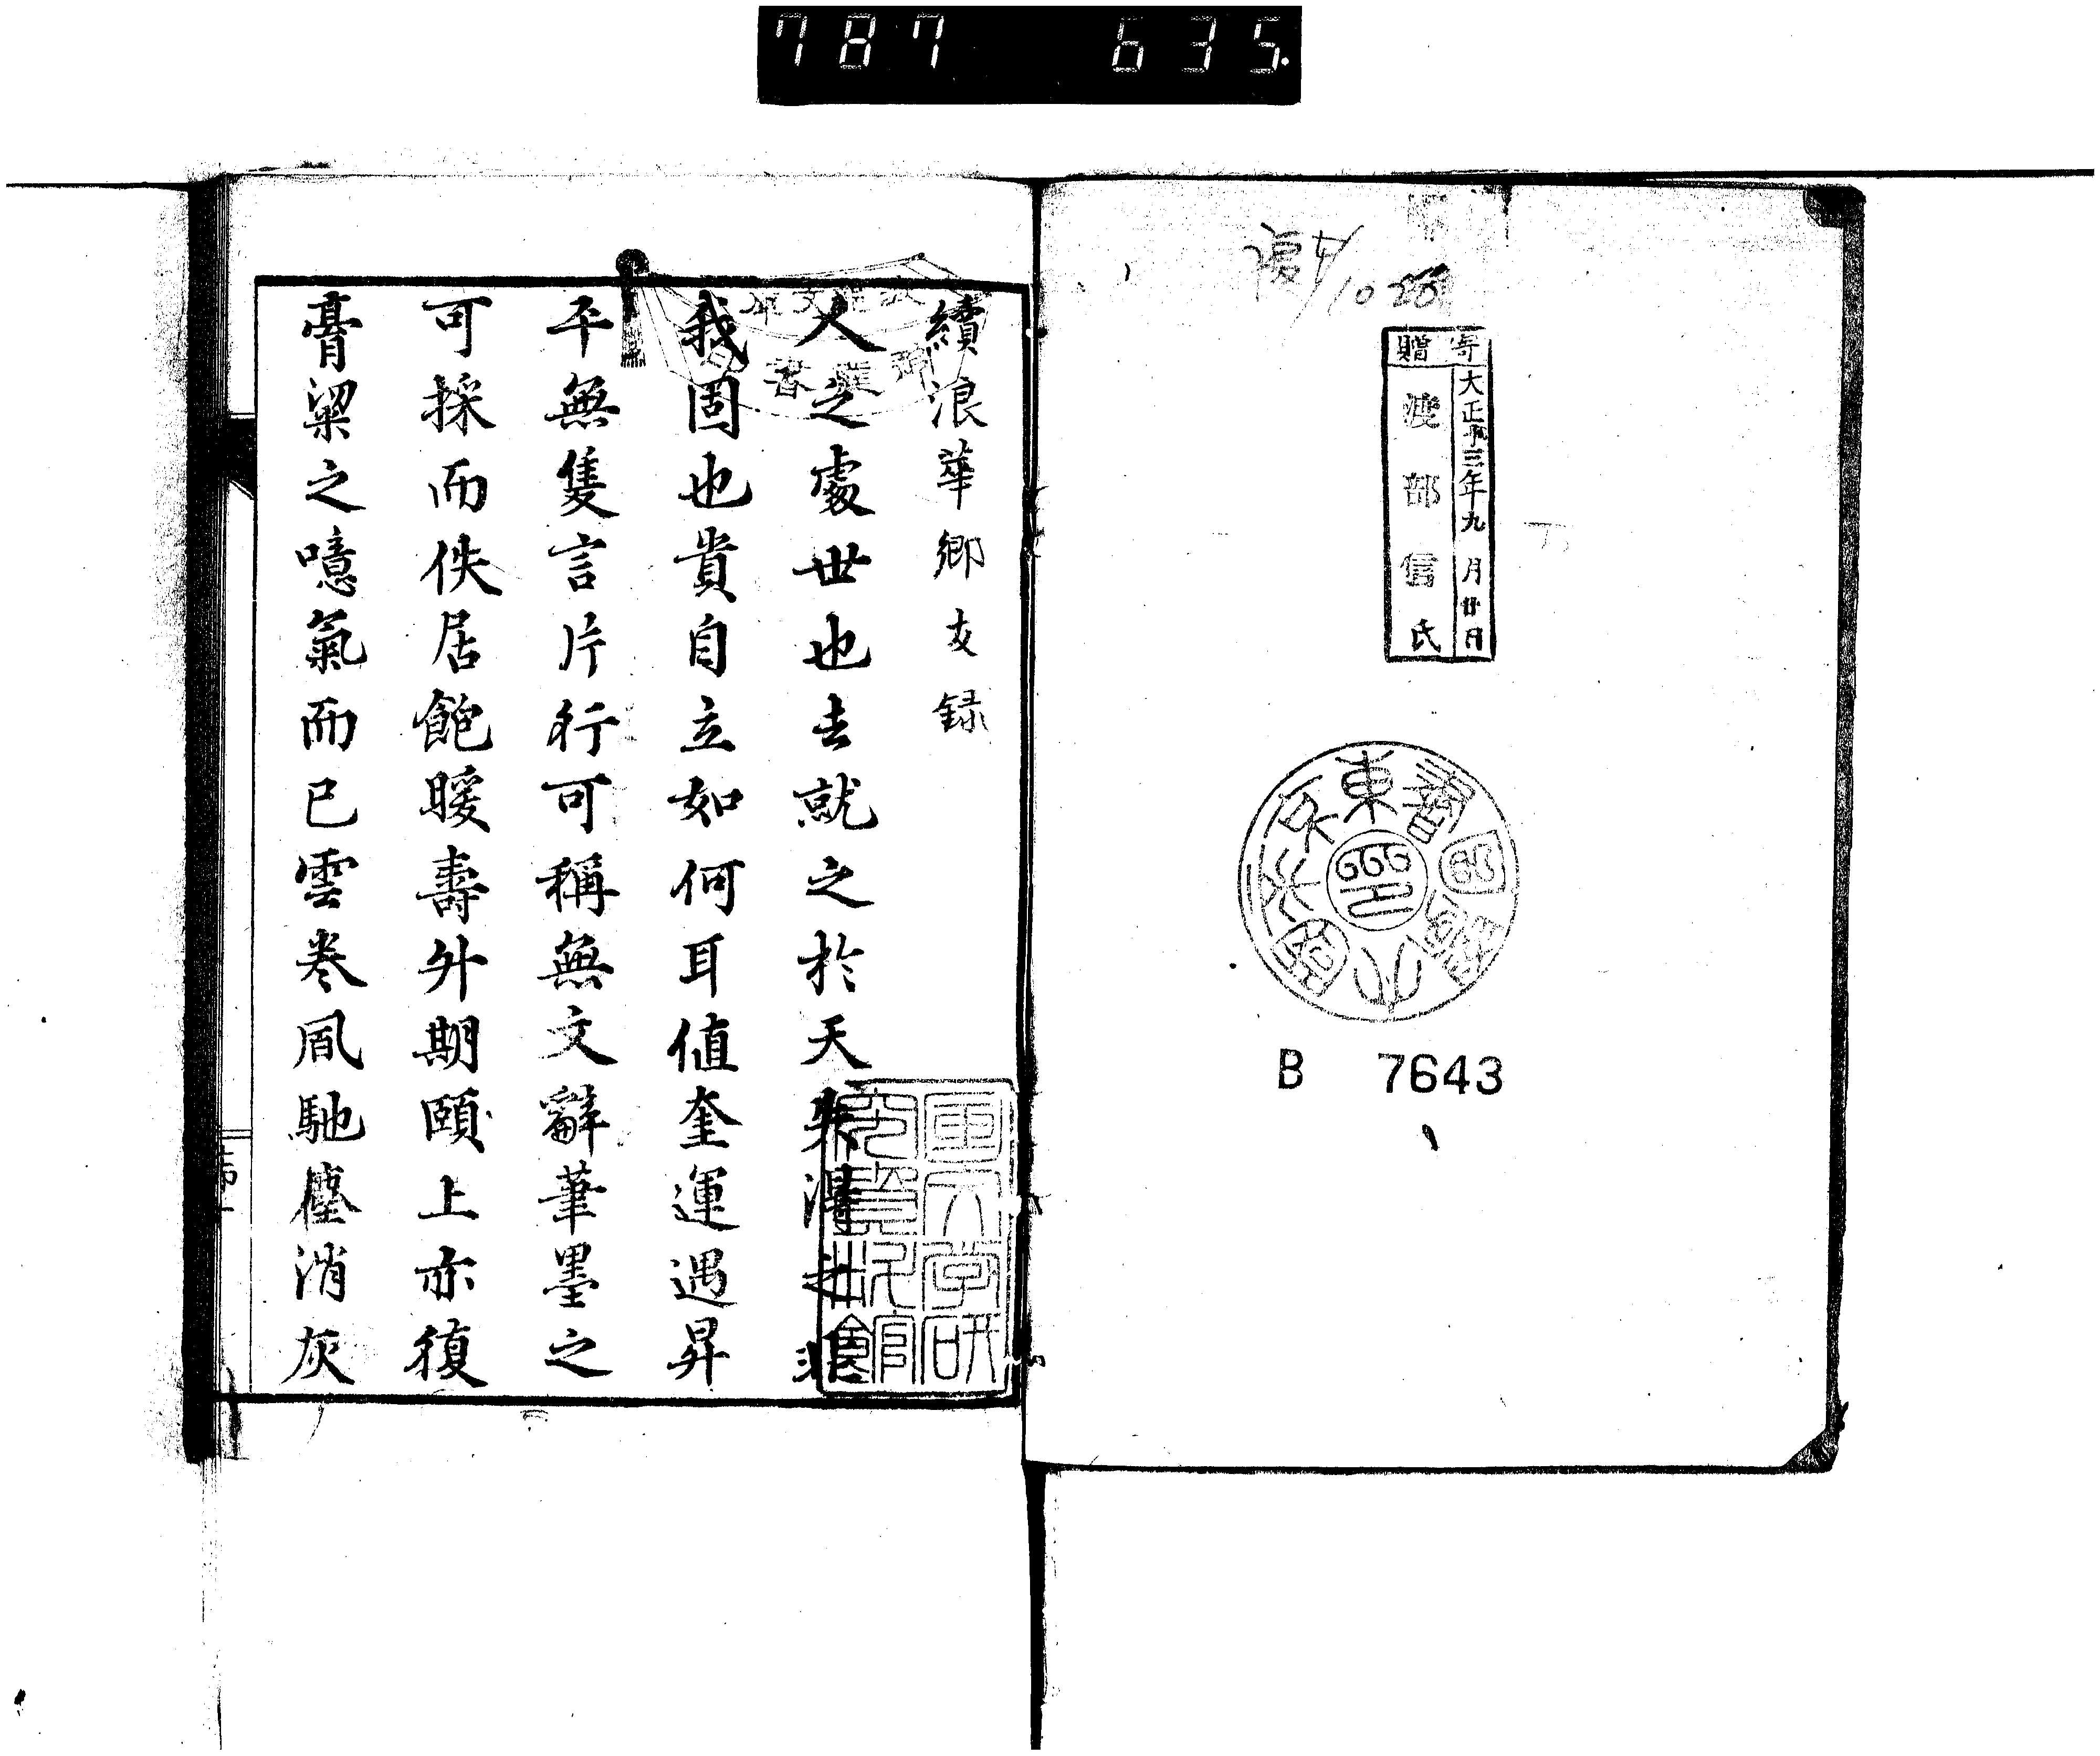 787 635.
寄贈
大正十三年九月廿日
渡部信氏
B 7643
續浪華郷友録
人之處世也去就之於天
我固也貴自立如何耳値奎運遇昇
平無隻言片行可稱無文辭筆墨之
可採而佚居飽暖壽外期頤上亦復
膏粱之噫氣而已雲卷風馳塵消灰